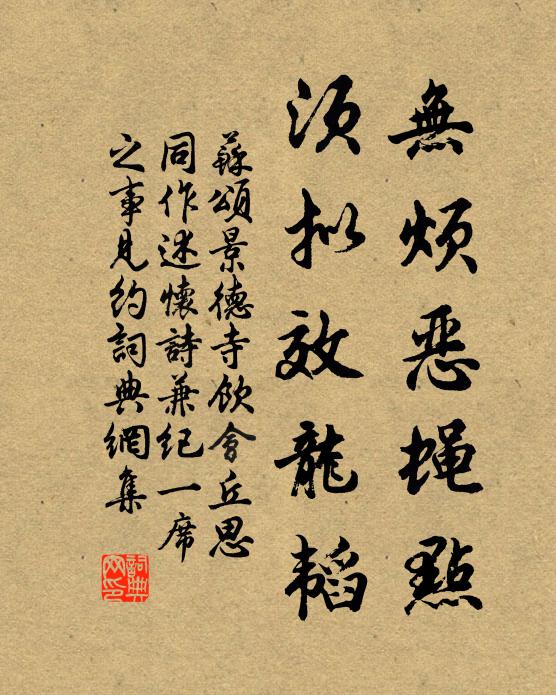 無煩恶蝇點
须拟效龍韬
蘇頌景德寺飲會丘思
同作述懷詩兼紀一席
之事見約詞典網集
詞典网印